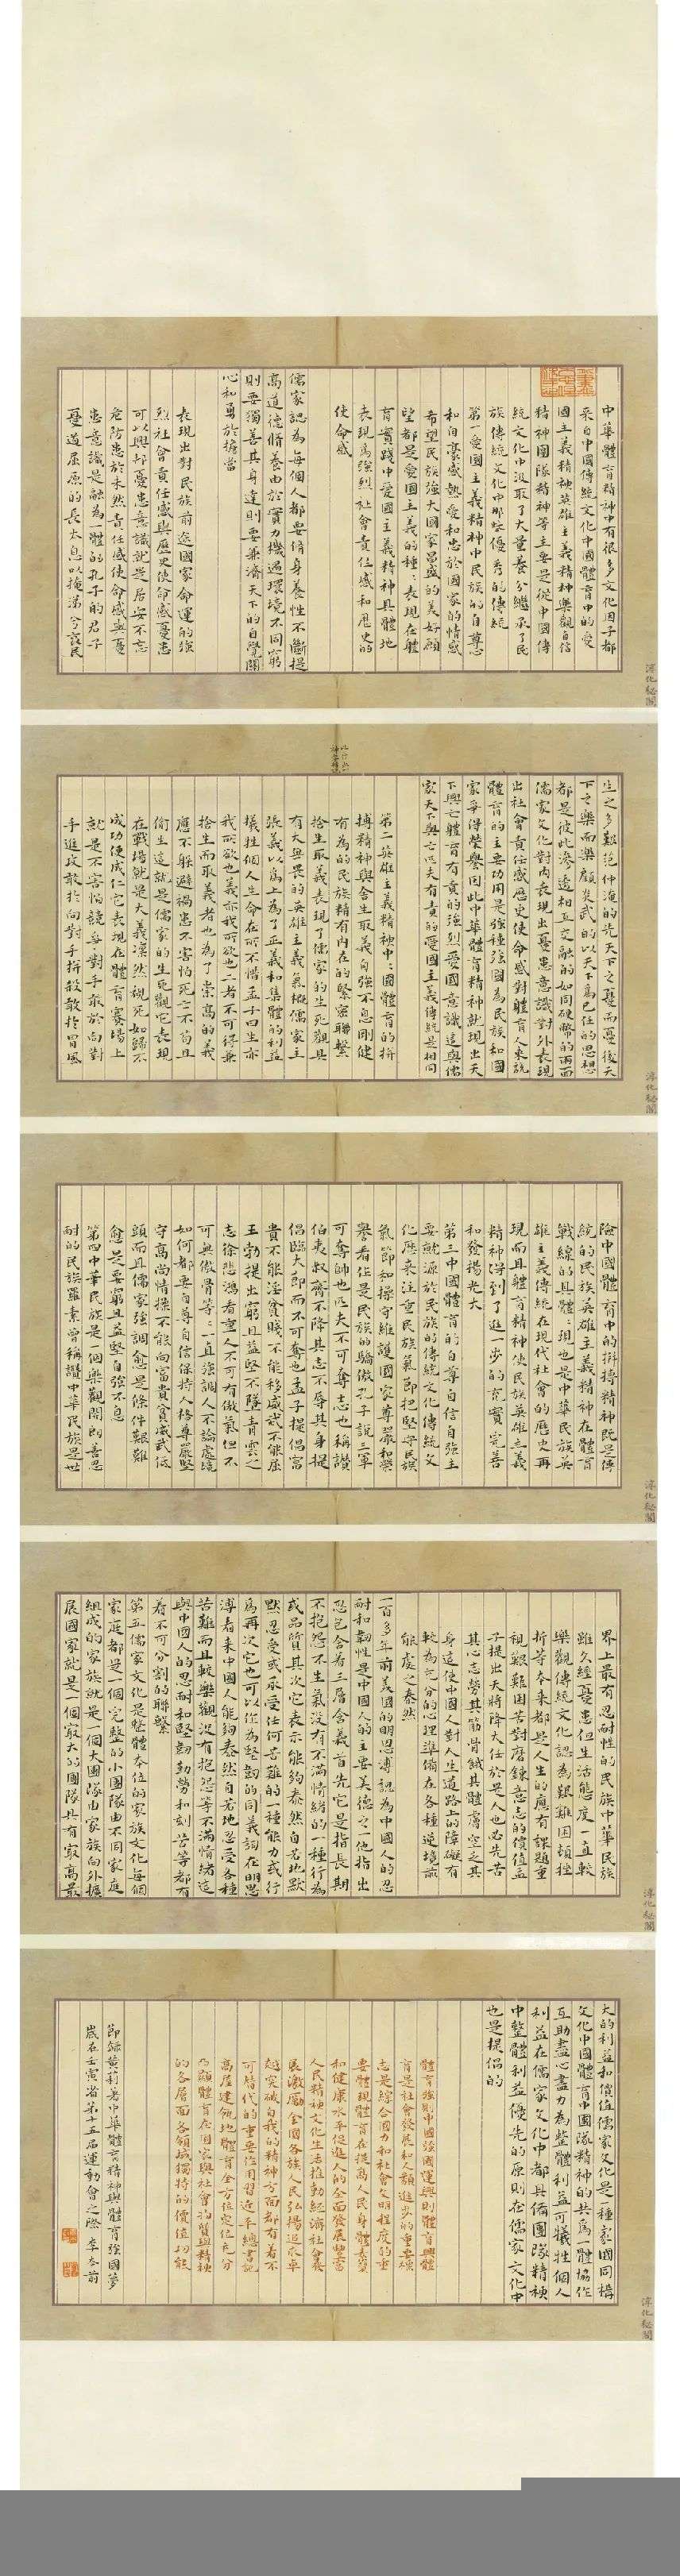 中華體育精神中有很多文化因子都
來自中國傳統文化中國體育中的愛
國主義精神英雄主義精神樂觀自信
精神團隊精神等主要是從中國傳
統文化中汲取了大量養分繼承了民
族傳統文化中那些優秀的傳統
第一愛國主義精神中民族的自尊心
和自豪感熱愛和忠於國家的情感
希望民族強大國家昌盛的美好願
望都是愛國主義的種種表現在體
育實踐中愛國主義精神具體地
表現為強烈社會責任感和歷史的
使命感
儒家認為每個人都要脩身養性不斷提
高道德脩養由於實力機遇環境不同窮
則要獨善其身達則要兼濟天下的自覺關
心和勇於擔當
表現出對民族前途國家命運的強
烈社會責任感與歷史使命感憂患
可以興邦憂患意識就是居安不忘
危防患於未然責任感使命感與憂
患意識是融為一體的孔子的君子
憂道屈原的長太息以掩涕兮哀民
淳化秘閣
生之多艱范仲淹的先天下之憂而憂後天
下之樂而樂顧炎武的以天下為己任的思想
都是彼此滲透相互交融的如同硬幣的兩面
儒家文化對內表現出憂患意識對外表現
出社會責任感歷史使命感對體育人來說
體育的主要功用是強種強國為民族和國
家爭得榮譽因此中華體育精神就現出天
下興亡體育有責的強烈愛國意識這與儒
家天下興亡匹夫有責的愛國主義傳統是相同
第二英雄主義精神中國體育的拚
搏精神與舍生取義自強不息剛健
有為的民族精有內在的緊密聯繫
捨生取義表現了儒家的生死觀具
有大無畏的英雄主義氣概儒家主
張義以為上為了正義和集體的利益
犧牲個人生命在所不惜孟子曰生亦
我所欲也義亦我所欲也二者不可得兼
捨生而取義者也為了崇高的義
應不躲避禍患不害怕死亡不苟且
偷生這就是儒家的生死觀它表現
在戰場就是大義凜然視死如歸不
成功便成仁它表現在體育賽場上
就是不害怕競爭對手敢於向對
手進攻敢於向對手拚殺敢於冒風
淳化秘閣
險中國體育中的拚搏精神既是傳
統的民族英雄主義精神在體育
戰線的具體體現也是中華民族英
雄主義傳統在現代社會的歷史再
現而且體育精神使民族英雄主義
精神得到了進一步的充實完善
和發揚光大
第三中國體育的自尊自信自強主
要觥源於民族的傳統文化傳統文
化歷來注重民族氣節把堅守民族
氣節和操守維護國家尊嚴和榮
譽看作是民族的驕傲孔子說三軍
可奪帥也匹夫不可奪志也稱讚
伯夷叔齊不降其志不辱其身提
倡臨大節而不可奪也孟子提倡富
貴不能淫貧賤不能移威武不能屈
王勃提出窮且益堅不墜青雲之
志徐悲鴻看重人不可有傲氣但不
可無傲骨等等一直強調人不論處境
如何都要自尊自信保持人格尊嚴堅
守高尚情操不能向富貴貧威武低
頭而且儒家強調愈是條件艱難
愈是要窮且益堅自強不息
第四中華民族是一個樂觀開朗善忍
耐的民族羅素曾稱讚中華民族是世
淳化秘閣
界上最有忍耐性的民族中華民族
雖久經憂患但生活態度一直較
樂觀傳統文化認為艱難困頓挫
折等本來都是人生的應有課題重
視艱難困苦對磨鍊意志的價值孟
子提出天將降大任於是人也必先苦
其心志勞其筋骨餓其體膚空乏其
身這使中國人對人生道路上的障礙有
較為充分的心理準備在各種逆境前
能處之泰然
一百多年前美國的明恩溥認為中國人的忍
耐和韌性是中國人的主要美德之一他指出
忍包含着三層含義首先它是指長期
不抱怨不生氣沒有不滿情緒的一種行為
或品質其次它表示能夠泰然自若地默
默忍受或承受任何苦難的一種能力或行
為再次它也可以作為堅韌的同義詞在明恩
溥看來中國人能夠泰然自若地忍受各種
苦難而且較樂觀沒有抱怨等不滿情緒這
與中國人的忍耐和堅韌勤勞和刻苦等都有
着不可分割的聯繫
第五儒家文化是整體本位的家族文化每個
家庭都是一個完整的小團隊由不同家庭
組成的家族就是一個大團隊由家族向外擴
展國家就是一個最大的團隊具有家高最
淳化秘閣
大的利益和價值儒家文化是一種家國同構
文化中國體育中團隊精神的共為一體協作
互助盡心盡力為整體利益可犧牲個人
利益在儒家文化中都具備團隊精神
中整體利益優先的原則在儒家文化中
也是提倡的
體育強則中國強國運興則體育興體
育是社會發展和人類進步的重要標
志是綜合國力和社會文明程度的重
要體現體育在提高人民身體素質
和健康水平促進人的全面發展豐富
人民精神文化生活推動經濟社會發
展激勵全國各族人民弘揚追求卓
越突破自我的精神方面都有着不
可替代的重要作用習近平總書記
高屋建瓴地體育全方位定位充分
凸顯體育在國家與社會的質與精神
的各層面各領域獨特的價值功能
節錄黃莉著中華體育精神與體育強國夢
歲在壬寅省第十五屆運動會之際李本前
淳化秘閣